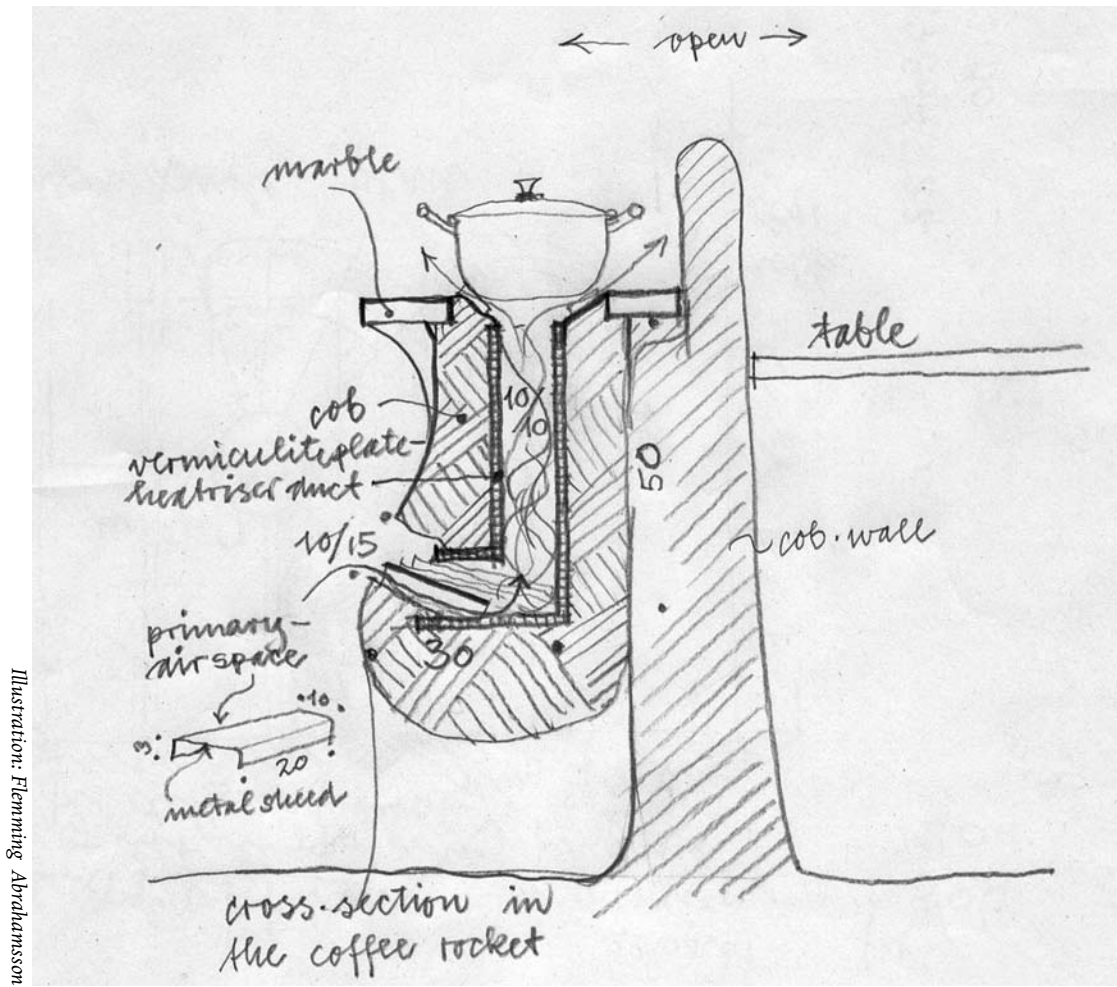 ← open →
marble
table
cob
vermiculiteplate-
heatriser duct
10×
10
50
cob.wall
10/15
primary-
airspace
30
10
3
20
metal sheed
cross.section in
the coffee rocket
Illustration: Flemming Abrahamsson